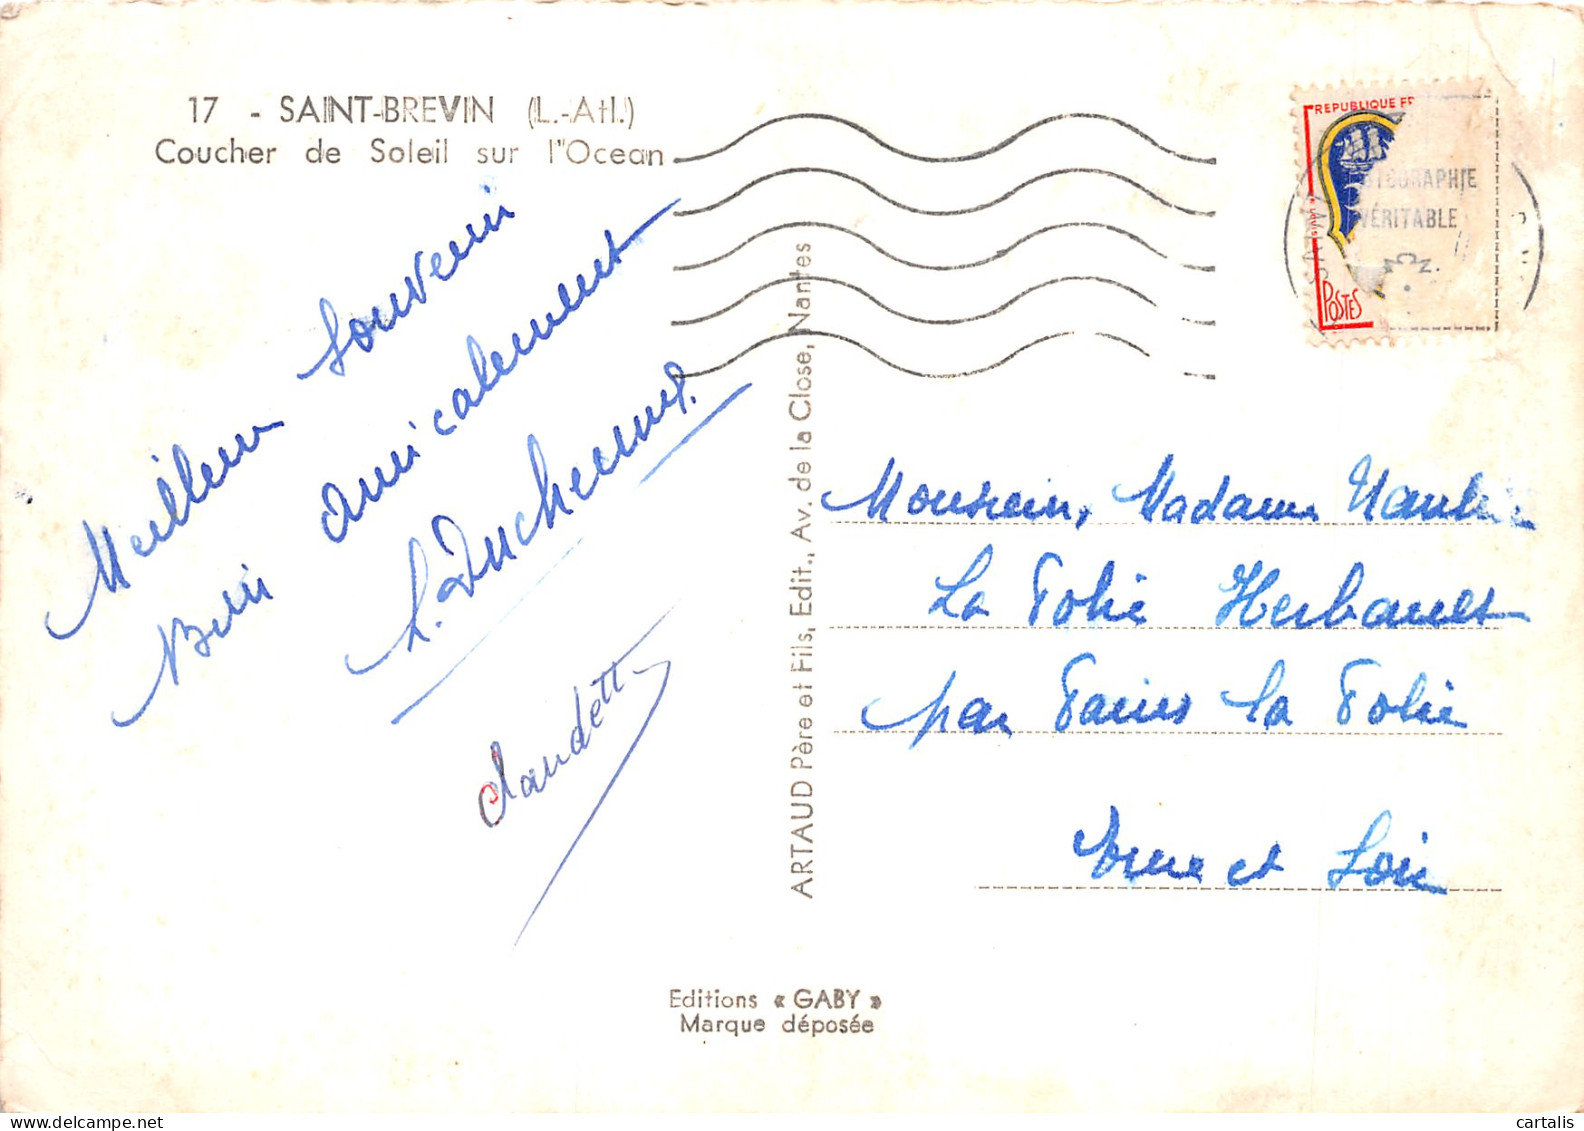 17 - SAINT-BREVIN (L.-Atl.)
Coucher de Soleil sur l"Ocean
Meilleur Souvenir
Bien amicalement
L. Duchemin
Claudette
ARTAUD Père et Fils, Edit., Av. de la Close, Nantes
REPUBLIQUE FR
POSTES
OTOGRAPHIE
VÉRITABLE
Monsieur, Madame
La Folie Herbault
par Fains la Folie
Eure et Loir
Editions « GABY »
Marque déposée
cartalis